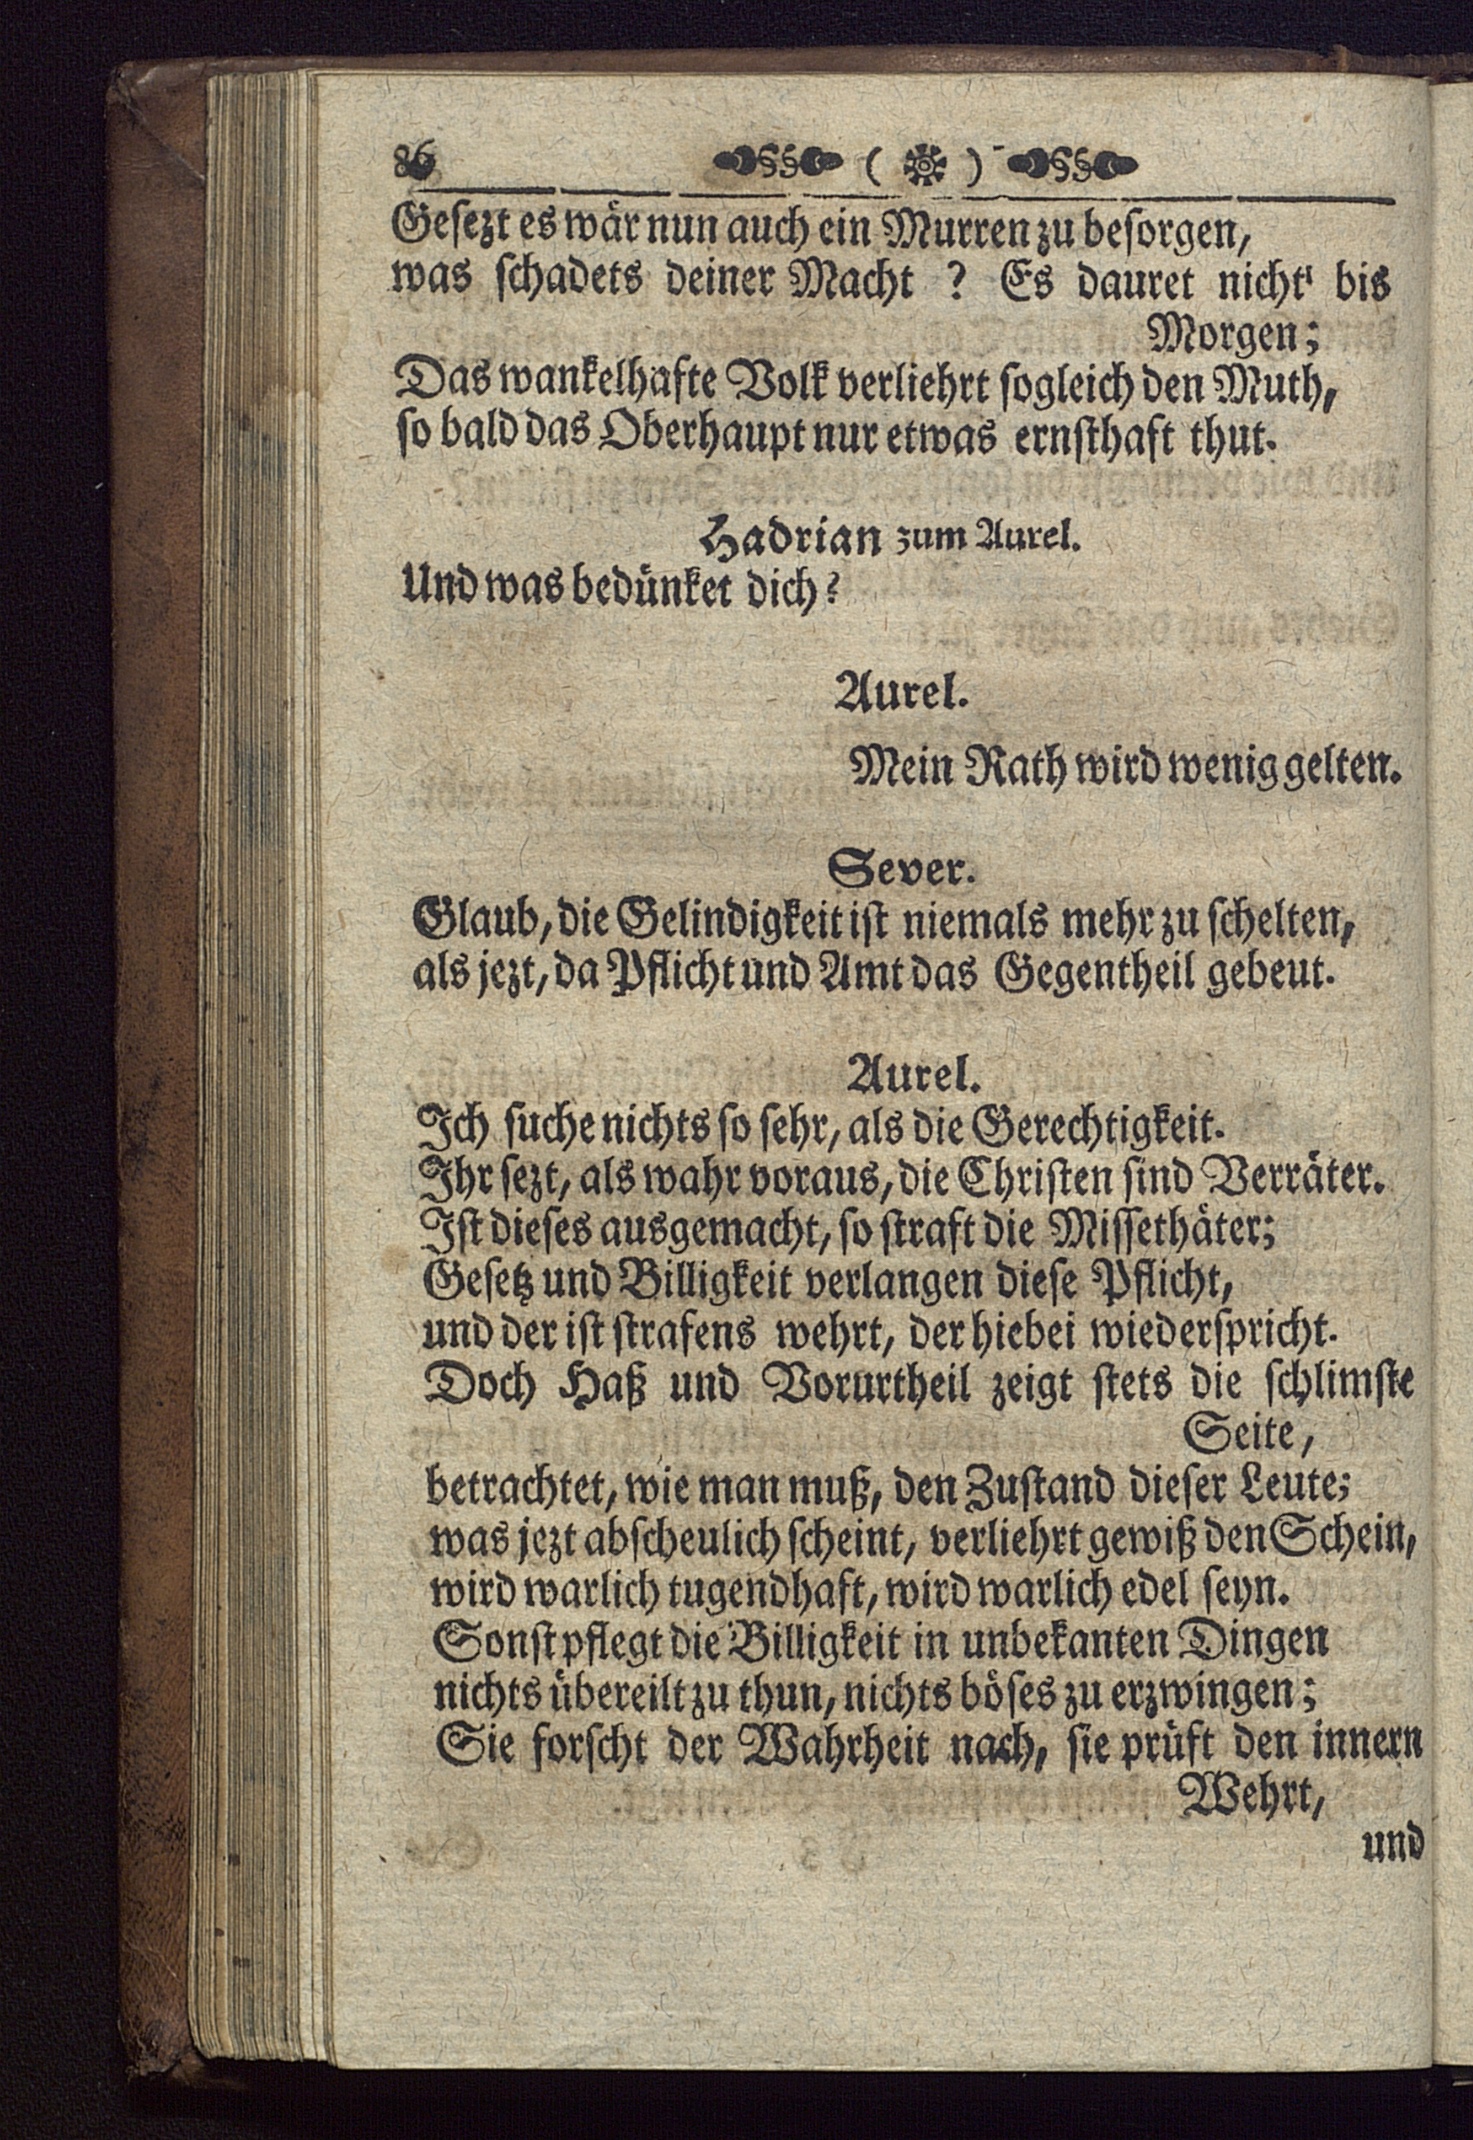 86 ( )
Gesezt es wär nun auch ein Murren zu besorgen,
was schadets deiner Macht ? Es dauret nicht bis
Morgen;
Das wankelhafte Volk verliehrt sogleich den Muth,
so bald das Oberhaupt nur etwas ernsthaft thut.
Hadrian zum Aurel.
Und was bedünket dich?
Aurel.
Mein Rath wird wenig gelten.
Sever.
Glaub, die Gelindigkeit ist niemals mehr zu schelten,
als jezt, da Pflicht und Amt das Gegentheil gebeut.
Aurel.
Ich suche nichts so sehr, als die Gerechtigkeit.
Ihr sezt, als wahr voraus, die Christen sind Verräter.
Ist dieses ausgemacht, so straft die Missethäter;
Gesetz und Billigkeit verlangen diese Pflicht,
und der ist strafens wehrt, der hiebei wiederspricht.
Doch Haß und Vorurtheil zeigt stets die schlimste
Seite,
betrachtet, wie man muß, den Zustand dieser Leute;
was jezt abscheulich scheint, verliehrt gewiß den Schein,
wird warlich tugendhaft, wird warlich edel seyn.
Sonst pflegt die Billigkeit in unbekanten Dingen
nichts übereilt zu thun, nichts böses zu erzwingen;
Sie forscht der Wahrheit nach, sie prüft den innern
Wehrt,
und